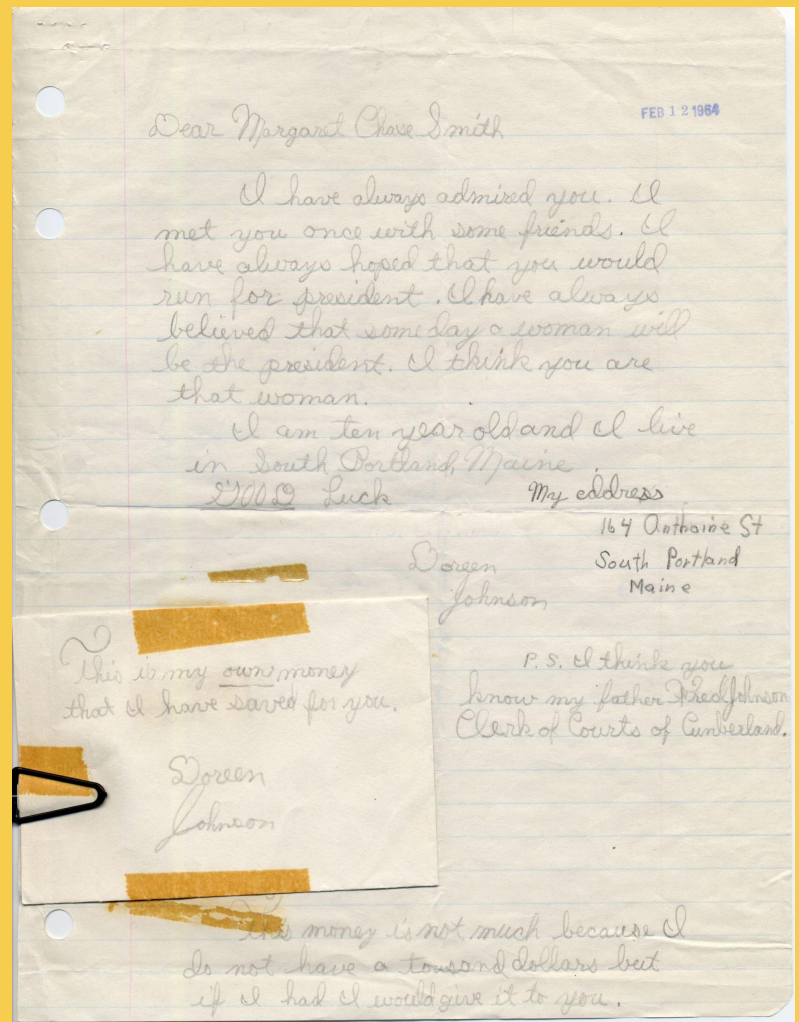 FEB 12 1964
Dear Margaret Chase Smith
I have always admired you. I
met you once with some friends. I
have always hoped that you would
run for president. I have always
believed that someday a woman will
be the president. I think you are
that woman.
I am ten year old and I live
in South Portland, Maine.
GOOD Luck
My address
164 Anthoine St
South Portland
Maine
Doreen
Johnson
P.S. I think you
know my father Fred Johnson
Clerk of Courts of Cunberland.
This is my own money
that I have saved for you.
Doreen
Johnson
This money is not much because I
do not have a tousand dollars but
if I had I would give it to you.